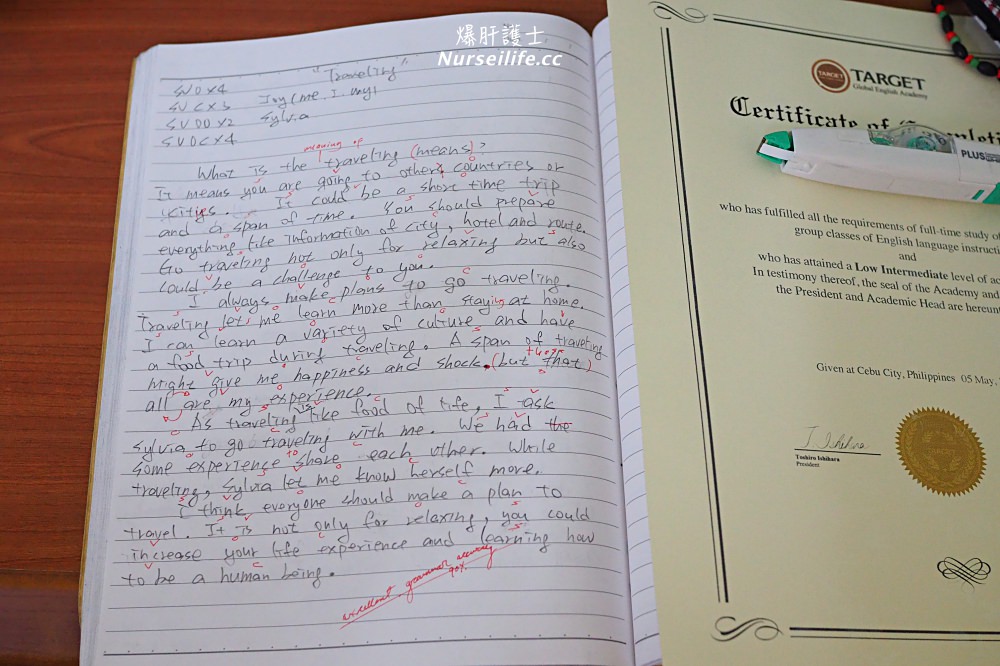 爆肝護士
Nurseilife.cc
"Traveling"
SVO x4
SVC x3 Joy (me, I, my)
SVOO x2 Sylvia
SVOC x4
meaning of
What is the traveling (means)?
It means you are going to other countries or
cities. It could be a short time trip
and a span of time. You should prepare
everything like information of city, hotel and route.
Go traveling not only for relaxing but also
could be a challenge to you.
I always make plans to go traveling.
Traveling lets me learn more than staying at home.
I can learn a variety of culture and have
a food trip during traveling. A span of traveling
those
might give me happiness and shock. (but that)
all are my experience.
As traveling is like food of life, I ask
Sylvia to go traveling with me. We had the
to
some experience share each other. While
traveling, Sylvia let me know herself more.
I think everyone should make a plan to
travel. It is not only for relaxing, you could
increase your life experience and learning how
to be a human being.
excellent grammar accuracy
90%
TARGET
TARGET
Global English Academy
Certificate of
PLUS
who has fulfilled all the requirements of full-time study of
group classes of English language instructi
and
who has attained a Low Intermediate level of ac
In testimony thereof, the seal of the Academy and
the President and Academic Head are hereun
Given at Cebu City, Philippines 05 May,
Toshiro Ishihara
President